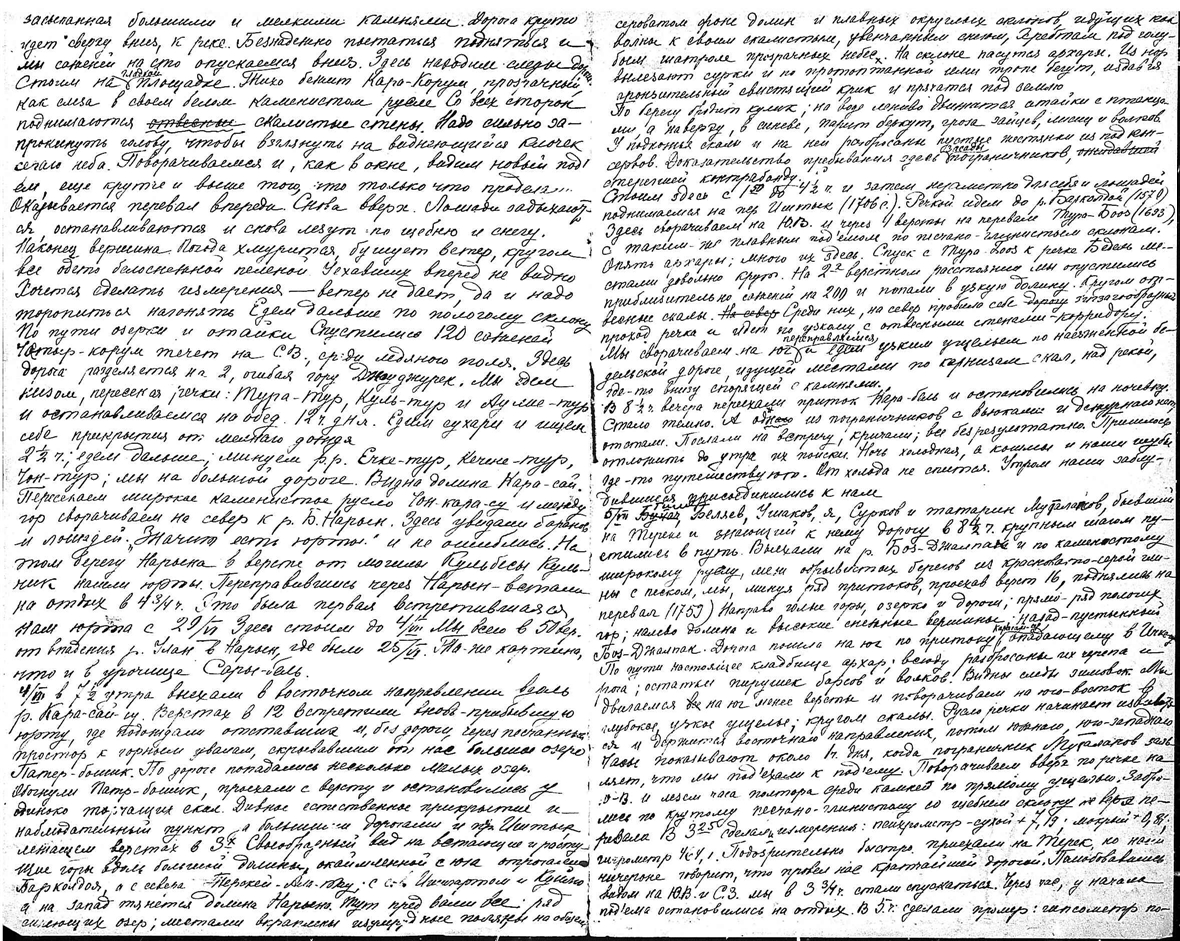 засыпанная большими и мелкими камнями. Дорога круто
идет сверху вниз, к реке. Безнадежно пытаться подняться и
мы саженей на сто опускаемся вниз. Здесь неровные следы
Стоим на гладкой площадке. Тихо бежит Кара-Корум, прозрачный
как слеза в своем белом каменистом русле. Со всех сторон
поднимаются отвесные скалистые стены. Надо сильно за-
прокинуть голову, чтобы взглянуть на виднеющийся клочек
неба. Поворачиваемся и, как в окне, видим новый под'
ем, еще круче и выше того, что только что проделали.
Оказывается перевал впереди. Снова вверх. Лошади задыхают-
ся останавливаются и снова лезут по щебню и снегу.
Наконец вершина. Погода хмурится, бушует ветер, кругом
все одето белоснежной пеленой. Уехавших вперед не видно
Хочется сделать измерения — ветер не дает, да и надо
торопиться нагонять. Едем дальше по пологому склону
По пути озерки и атайки. Спустились 120 саженей
корум течет на СВ, среди ледяного поля. Здесь
дорога разделяется на 2, огибая гору Джауджурек. Мы едем
низом, пересекая речки: Тура-тур, Куль-тур и Аулие-тур
и останавливаемся на обед. 12 ч. дня. Едим сухари и ищем
себе прикрытия от мелкого дождя
2½ ч.; едем дальше; минуем р.р. Ечке-тур, Кечене-тур,
Чон-тур; мы на большой дороге. Видна долина Кара-сай.
Пересекаем широкое каменистое русло Чон-кара-су и между
гор сворачиваем на север к р. Б. Нарын. Здесь увидали баранов
и лошадей. "Значит есть юрты" и не ошиблись. На
том берегу Нарына в версте от могилы Кульбесы
нашли юрты. Переправившись через Нарын - встали
на отдых в 4¾ ч. Это была первая встретившаяся
нам юрта с 29/VII. Здесь стоим до 4/VIII. Мы всего в 50 вер.
от впадения р. Улан в Нарын, где были 25/VII. Та-же картина,
что и в урочище Сары-
4/VIII в 7½ утра выехали в восточном направлении вдоль
р. Кара-сай-су. Верстах в 12 встретили вновь-прибывшую
юрту, где подождали отставших и, без дороги, через песчаный
простор к горным увалам, скрывавшим от нас большое озеро
Патер-бошик. По дороге попадались несколько малых озер.
Обогнули Патр-бошик, проехали с версту и остановились у
одиноко торчащих скал. Дивное естественное прикрытие и
наблюдательный пункт над большими дорогами и пер. Иштык
лежащем верстах в 3х. Своеобразный вид на встающие и расту-
щие горы вдоль большой долины, окаймленной с юга отрогами
Барколдоя, а с севера - Терскей-Ала-тау; с с-в. Иштартом и
а на запад тянется долина Нарына. Тут пред вами все: ряд
сияющих озер; местами вкраплены изумрудные поляны на общем
сероватом фоне долин и плавных округлых склонов, идущих как
волны к своим скалистым, увенчанным снегом, хребтам под голу-
бым шатром прозрачных небес. На склоне пасутся архары. Из нор
вылезают сурки и по протоптанной ими тропе бегут, издавая
пронзительный свистящий крик и прячутся под землю
По берегу бродит кулик; на воде лениво движутся атайки с птенца-
ми, а наверху, в синеве, парит беркут, гроза зайцев, лисиц и волков.
У подножья скалы и на ней разбросаны пустые жестянки из под кон-
сервов. Доказательство пребывания здесь засады пограничников, ожидавшей
стерегшей контрабанду.
Стоим здесь с 1 до 4½ ч. и затем незаметно для себя и лошадей
поднимаемся на пер. Иштык (1706 с.). Речкой идем до р. Барколдой (1570)
Здесь сворачиваем на Ю.В. и через 4 версты на перевале Туро-Бооз (1633),
с таким-же плавным под'емом по песчано-глинистым склонам.
Опять архары; много их здесь. Спуск с Туро-Бооз к речке Бедель ме-
стами довольно крут. На 2х верстном расстоянии мы опустились
приблизительно саженей на 200 и попали в узкую долинку. Кругом отве-
весные скалы. На север Среди них, на север пробила себе дорогу зигзагообразный
проход речка и идет по узкому с отвесными стенами - корридору.
Мы сворачиваем на юг переправляемся и едем узким ущельем по наезженной бе-
дельской дороге, идущей местами по карнизам скал, над рекой,
где-то внизу спорящей с камнями.
В 8½ ч. вечера переехали приток Кара-баль и остановились на ночевку.
Стало темно. А один из пограничников с вьюками и
отстали. Послали на встречу; кричали; все безрезультатно. Пришлось
отложить до утра их поиски. Ночь холодная, а кошмы и наши шубы
где-то путешествуют. От холода не спится. Утром наши заблу-
дившиеся присоединились к нам
5/VIII Беляев, Ушаков, я, Сурков и татарин Муталапов, бывший
на Тереке и знающий к нему дорогу в 8¼ ч. крупным шагом пу-
стились в путь. Выехали на р. Боз-Джалпак и по каменистому
широкому руслу, меж обрывистых берегов из красновато-серой гли-
ны с песком, мы, минуя ряд притоков, проехав верст 16, поднялись на
перевал (1759). Направо голые горы, озерко и дороги; прямо - ряд пологих
гор; налево долина и высокие снежные вершины; назад - пустынный
Боз-Джалпак. Дорога пошла на юг по притоку, впадающему в
По пути настоящее кладбище архар: всюду разбросаны их черепа и
рога; остатки пирушек барсов и волков. Видны следы зимовок. Мы
двигаемся на юг менее версты и поворачиваем на юго-восток в
глубокое, узкое ущелье; кругом скалы. Русло речки начинает извивать-
ся и держится восточного направления, потом южного, юго-западного
Часы показывают около 1ч. дня, когда пограничник Муталапов заяв-
ляет, что мы под'ехали к под'ему. Поворачиваем вверх по речке на
Ю-В. и лезем часа полтора среди камней по прямому ущелью. Забра-
лись по крутому песчано-глинистому со щебнем склону на верх пе-
ревала. В 3 25 сделали измерения: психрометр - сухой + 7,9; мокрый - 0,8;
гипсометр Подозрительно быстро приехали на Терек, но наш
чичероне говорит, что провел нас кратчайшей дорогой. Полюбовавшись
видом на Ю.В. и С.З. мы в 3¾ ч. стали спускаться. Через час, у начала
под'ема остановились на отдых. В 5 ч. сделали промер: гипсометр по-